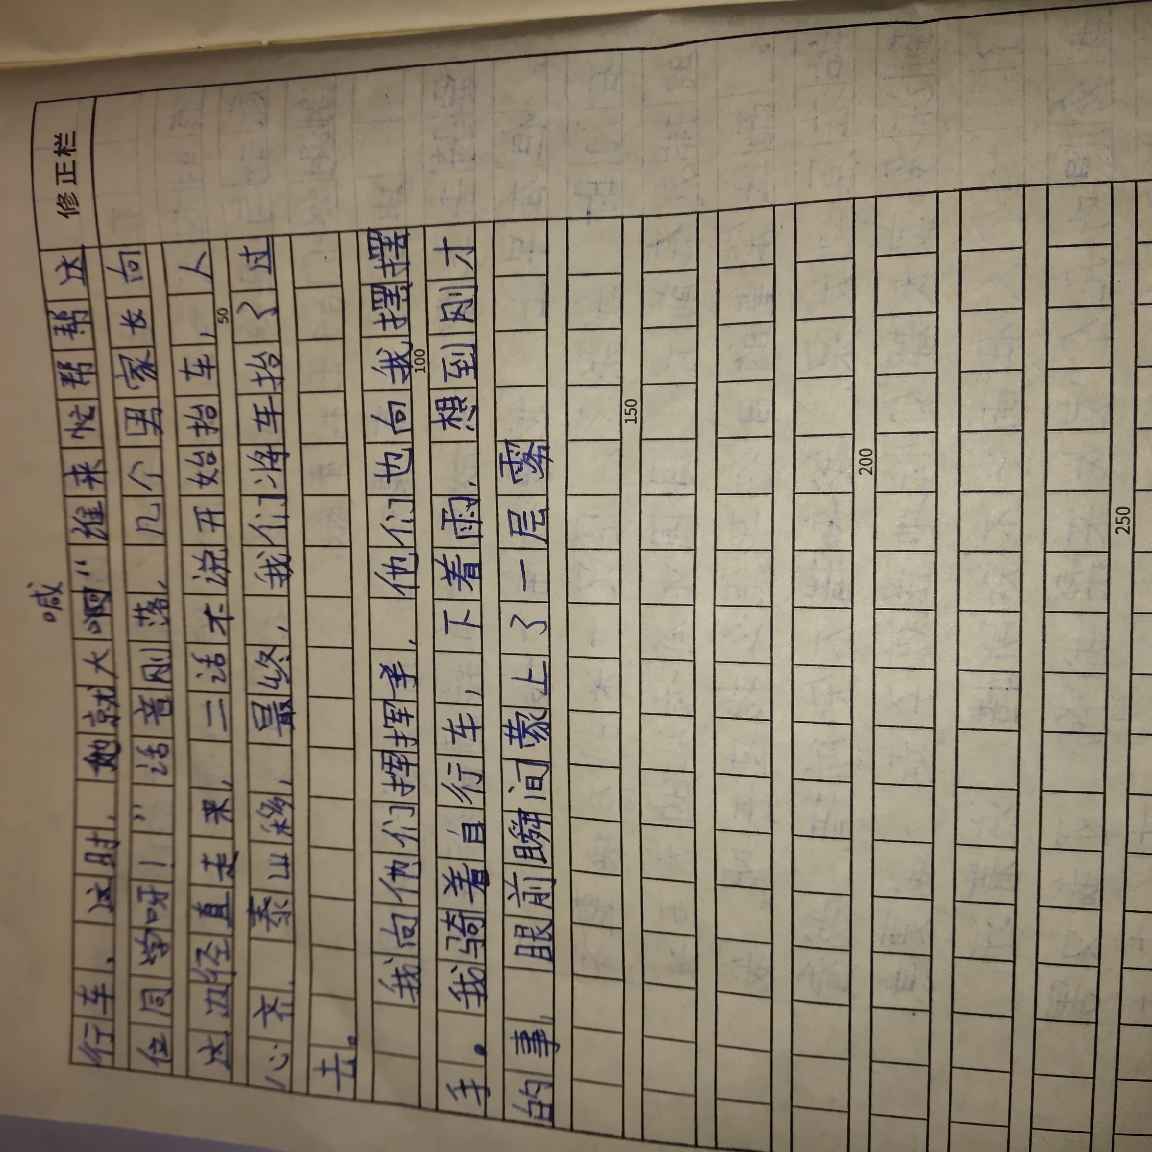 修正栏
喊
行车，这时，她就大啊“谁来忙帮帮这
位同学呀！”话音刚落，几个男家长向
这边径直走来，二话不说开始抬车，人
50
心齐，泰山移，最终，我们将车抬了过
去。
我向他们挥挥手，他们也向我摆摆
100
手。我骑着自行车，下着雨，想到刚才
的事，眼前瞬间蒙上了一层雾
150
200
250